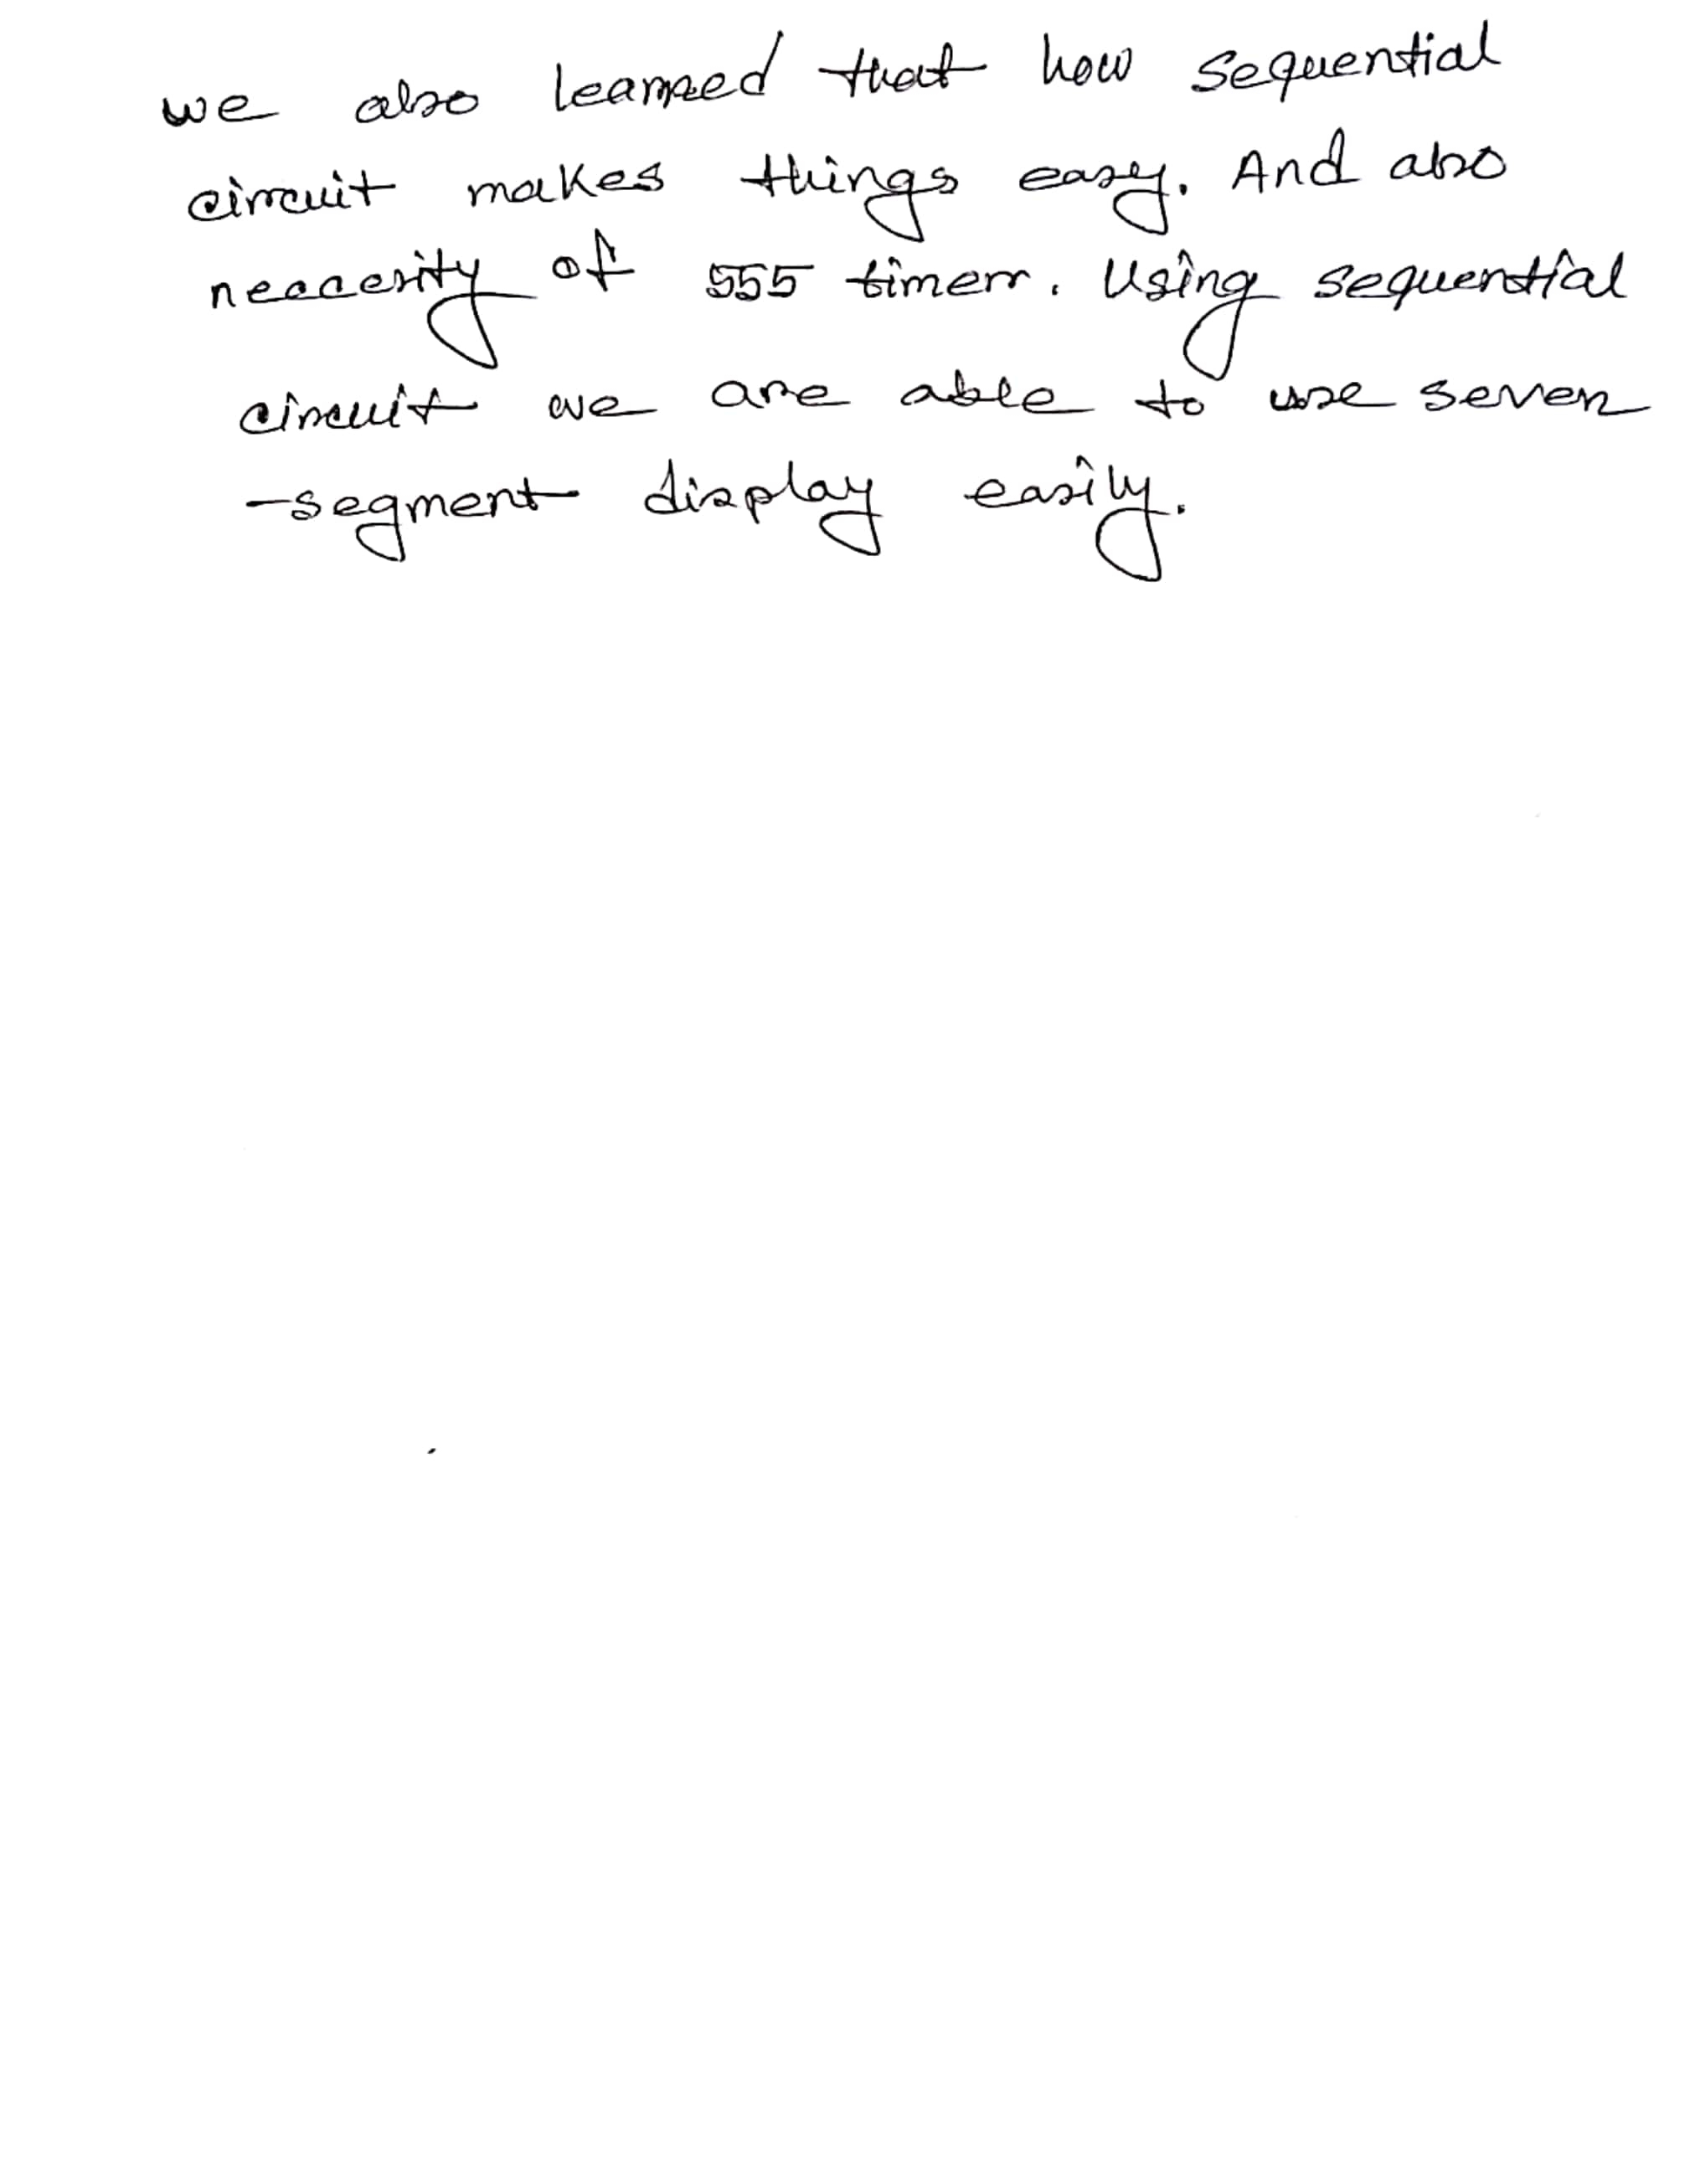 we also learned that how sequential
circuit makes things easy. And also
neccesity of 555 timer. Using sequential
circuit we are able to use seven
-segment display easily.